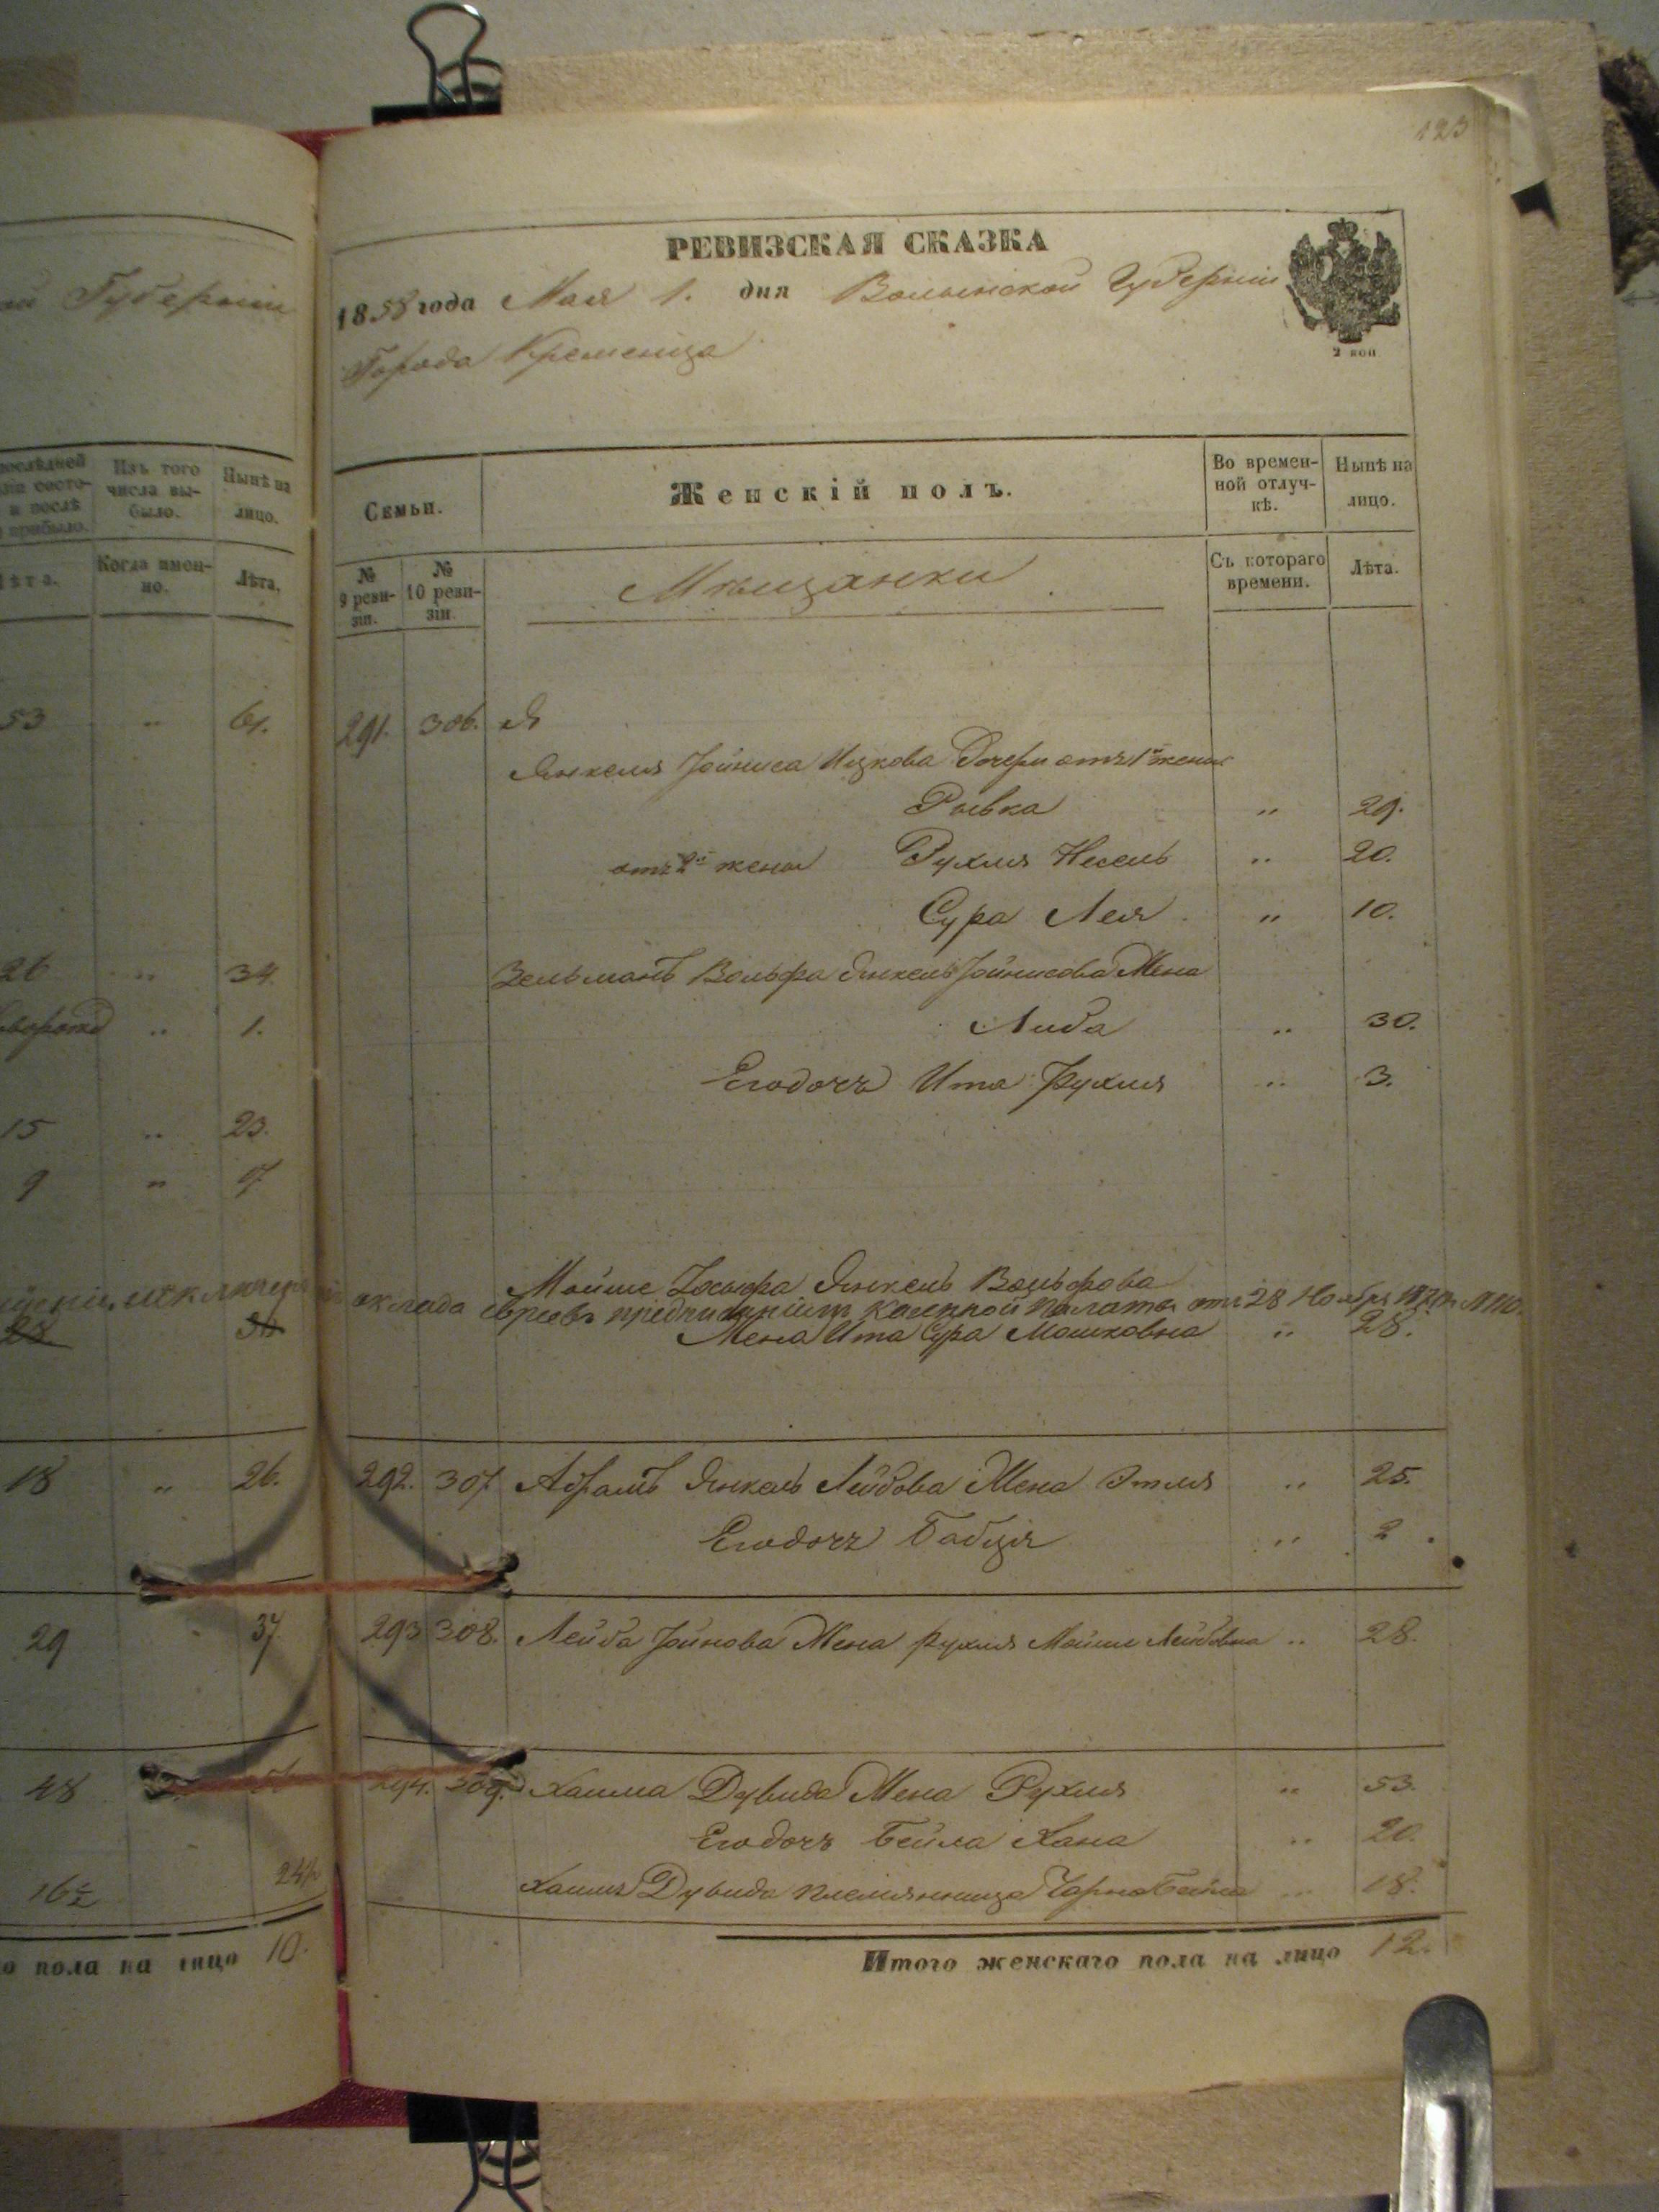 123
Губерніи
РЕВИЗСКАЯ СКАЗКА
1858 года Мая 1. дня Волынской Губерніи
Города Кременца
2 коп
послѣдней
и послѣ
прибыло.
Изъ того
числа вы-
было.
Нынѣ на
лицо.
Лѣта.
Когда имен-
но.
Лѣта.
Семьи.
Женскій полъ.
Во времен-
ной отлуч-
кѣ.
Нынѣ на
лицо.
№
9 реви-
зіи.
№
10 реви-
зіи.
Мѣщанки
Съ котораго
времени.
Лѣта.
53 " 61.
291. 306. Я
Янкеля Іойниса Ицкова Дочери отъ 1й жены
Рывка " 29.
отъ 2й жены Рухля Несель " 20.
Сура Лея " 10.
26 " 34.
Зельманъ Вольфа Янкель Іойнисова Жена
Либа " 30.
" 1.
Его дочь Ита Рухля " 3.
15 " 23.
9 " 17
Мойше Іосьфа Янкель Вольфова
оклада евреевъ предписаніемъ Казенной Палаты отъ 28 Ноября
Жена Ита Сура Мошковна " 28.
18 " 26.
292. 307. Абрамъ Янкель Лейбова Жена Этля " 25.
Его дочь Бабця " 2
29 37.
293 308. Лейба Іойнова Жена Рухля Мойше Лейбовна " 28.
48
294. 309. Хаима Дувида Жена Рухля " 53.
Его дочь Бейла Хана " 20.
16½ 24½
Хаимъ Дувида племянница Чарна Бейла " 18.
пола на лицо 10.
Итого женскаго пола на лицо 12.